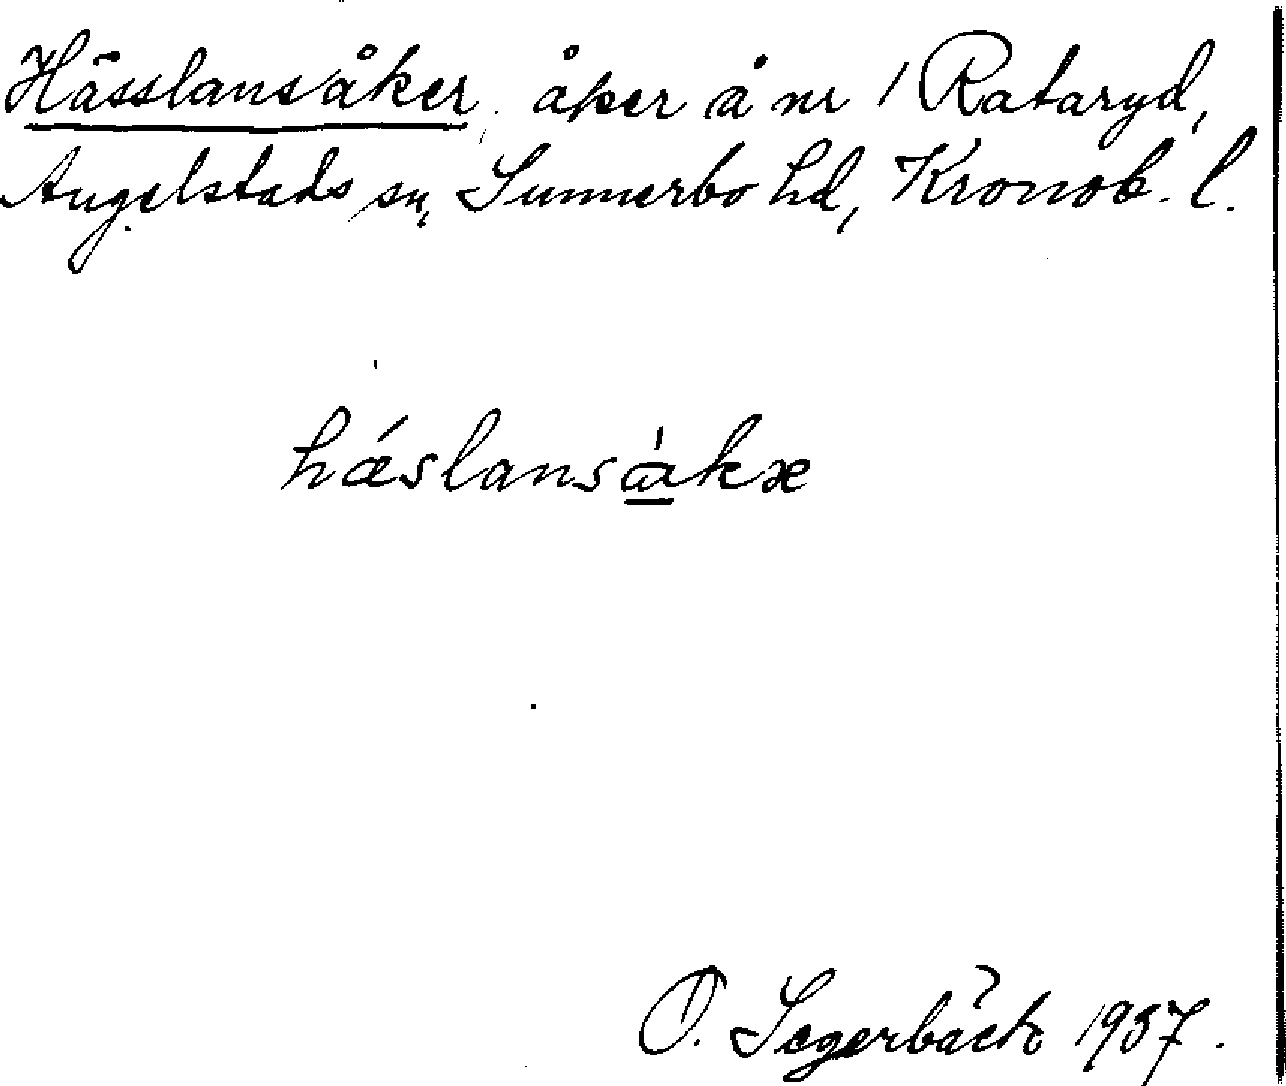 Hässlansåker, åker å nr 1 Rataryd,
Angelstads sn, Sunnerbo hd, Kronob. l.
hǽslansåkæ
O. Segerbäck 1937.